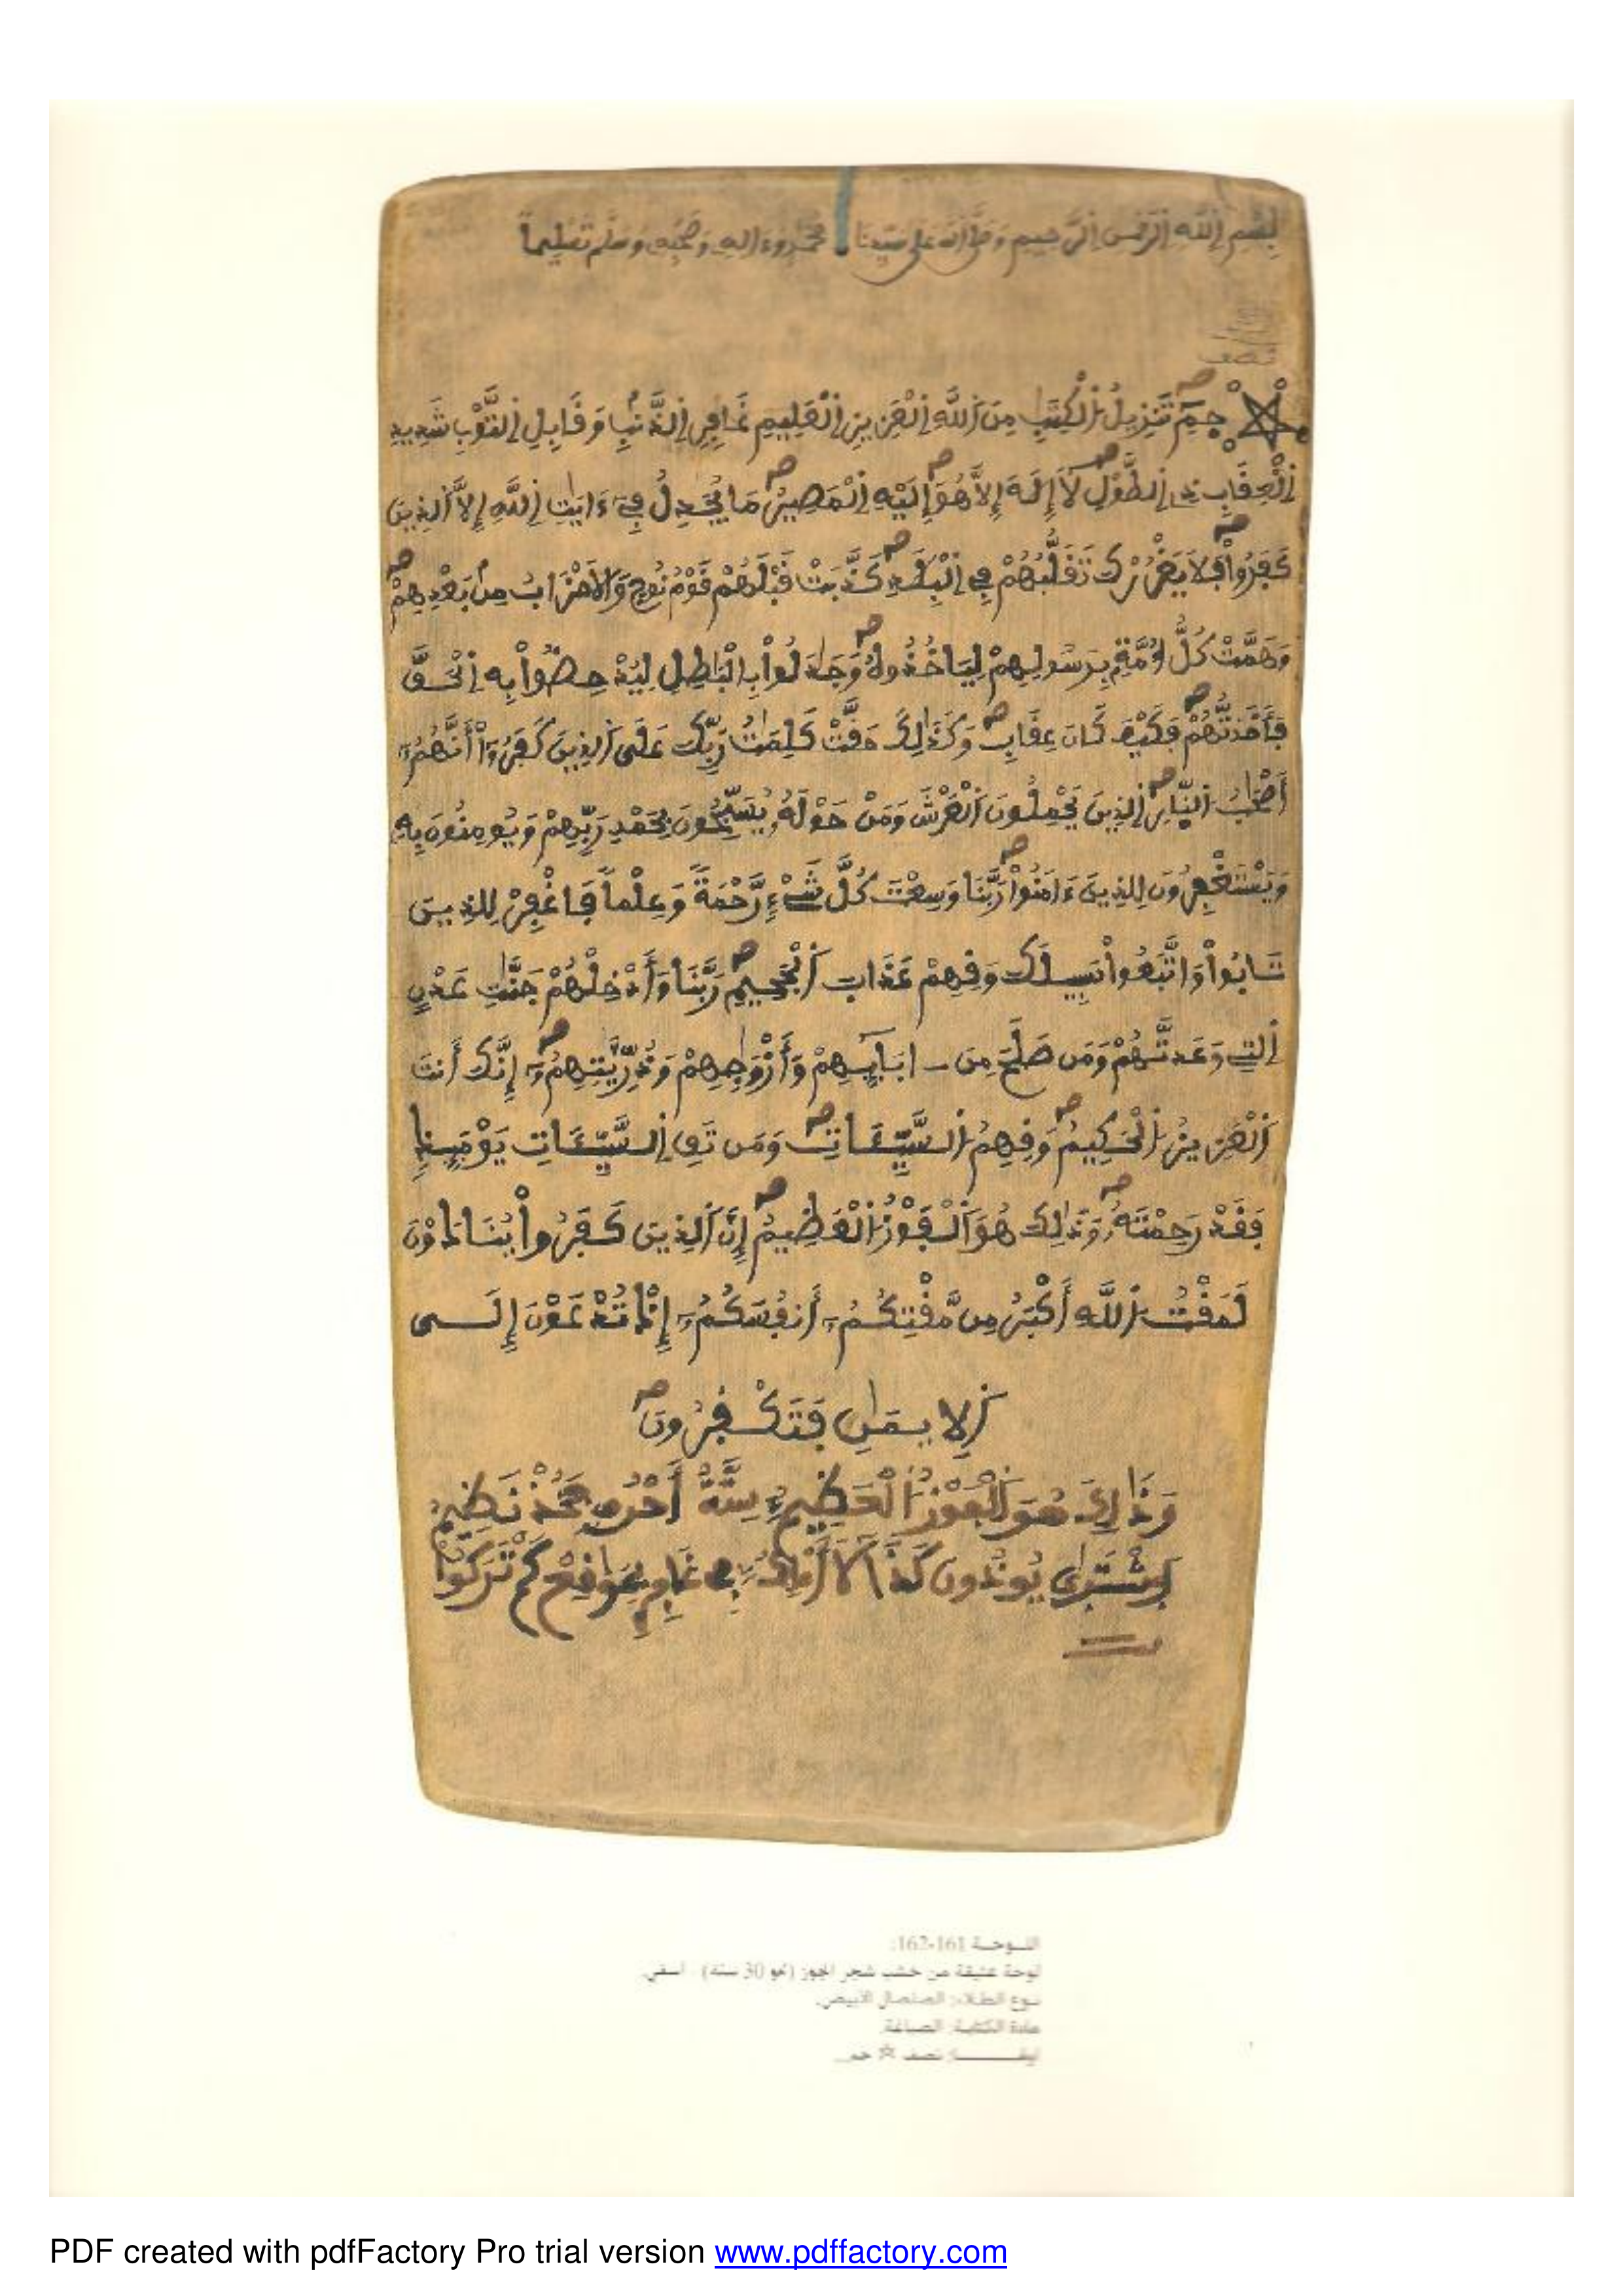 بِسْمِ اِللَّهِ اِلرَّحْمَٰنِ اِلرَّحِيمِ وَصَلَّى اَللَّهُ عَلَى سَيِّدِنَا مُحَمَّدٍ وَءَالِهِ وَصَحْبِهِ وَسَلَّمَ تَسْلِيماً
نصف
حمٓ تَنزِيلُ اُلْكِتَٰبِ مِنَ اَللَّهِ اِلْعَزِيزِ اِلْعَلِيمِ غَافِرِ اِلذَّنۢبِ وَقَابِلِ اِلتَّوْبِ شَدِيدِ
اِلْعِقَابِ ذِے اِلطَّوْلِ لَآ إِلَٰهَ إِلَّا هُوَ إِلَيْهِ اِلْمَصِيرُ مَا يُجَٰدِلُ فِےٓ ءَايَٰتِ اِللَّهِ إِلَّا اَلذِينَ
كَفَرُواْ فَلَا يَغْرُرْكَ تَقَلُّبُهُمْ فِے اِلْبِلَٰدِ كَذَّبَتْ قَبْلَهُمْ قَوْمُ نُوحٍ وَالَاحْزَابُ مِنۢ بَعْدِهِمْ
وَهَمَّتْ كُلُّ أُمَّةٍۢ بِرَسُولِهِمْ لِيَاخُذُوهُ وَجَٰدَلُواْ بِالْبَٰطِلِ لِيُدْحِضُواْ بِهِ اِلْحَقَّ
فَأَخَذتُّهُمْ فَكَيْفَ كَانَ عِقَابِ وَكَذَٰلِكَ حَقَّتْ كَلِمَٰتُ رَبِّكَ عَلَى اَلذِينَ كَفَرُوٓاْ أَنَّهُمُۥٓ
أَصْحَٰبُ اُلنّ۪ارِ اِلذِينَ يَحْمِلُونَ اَلْعَرْشَ وَمَنْ حَوْلَهُۥ يُسَبِّحُونَ بِحَمْدِ رَبِّهِمْ وَيُومِنُونَ بِهِۦ
وَيَسْتَغْفِرُونَ لِلذِينَ ءَامَنُواْ رَبَّنَا وَسِعْتَ كُلَّ شَےْءٍ رَّحْمَةً وَعِلْماً فَاغْفِرْ لِلذِينَ
تَابُواْ وَاتَّبَعُواْ سَبِيلَكَ وَقِهِمْ عَذَابَ اَلْجَحِيمِ رَبَّنَا وَأَدْخِلْهُمْ جَنَّٰتِ عَدْنٍ
اِلتِے وَعَدتَّهُمْ وَمَن صَلَحَ مِنَ ـ ابَآئِهِمْ وَأَزْوَٰجِهِمْ وَذُرِّيَّٰتِهِمُۥٓ إِنَّكَ أَنتَ
اَلْعَزِيزُ اُلْحَكِيمُ وَقِهِمُ اُلسَّيِّـَٔاتِ وَمَن تَقِ اِلسَّيِّـَٔاتِ يَوْمَئِذٍ
فَقَدْ رَحِمْتَهُۥ وَذَٰلِكَ هُوَ اَلْفَوْزُ اُلْعَظِيمُ إِنَّ اَلذِينَ كَفَرُواْ يُنَادَوْنَ
لَمَقْتُ اُللَّهِ أَكْبَرُ مِن مَّقْتِكُمُۥٓ أَنفُسَكُمُۥٓ إِذْ تُدْعَوْنَ إِلَى
اَلِايمَٰنِ فَتَكْفُرُونَ
وَذَٰلِكَ هُوَ اَلْفَوْزُ اُلْعَظِيمُ سِتَّةٌ أَحْرُفٍ
يُونُسَ كَذَا
اللـوحـة 161-162:
لوحة عتيقة من خشب شجر الجوز (نحو 30 سنة) . أسفي.
نـوع الطـلاء: الصلصال الأبيض.
مادة الكتابـة: الصباغة.
نصف ☆ حم.
PDF created with pdfFactory Pro trial version www.pdffactory.com